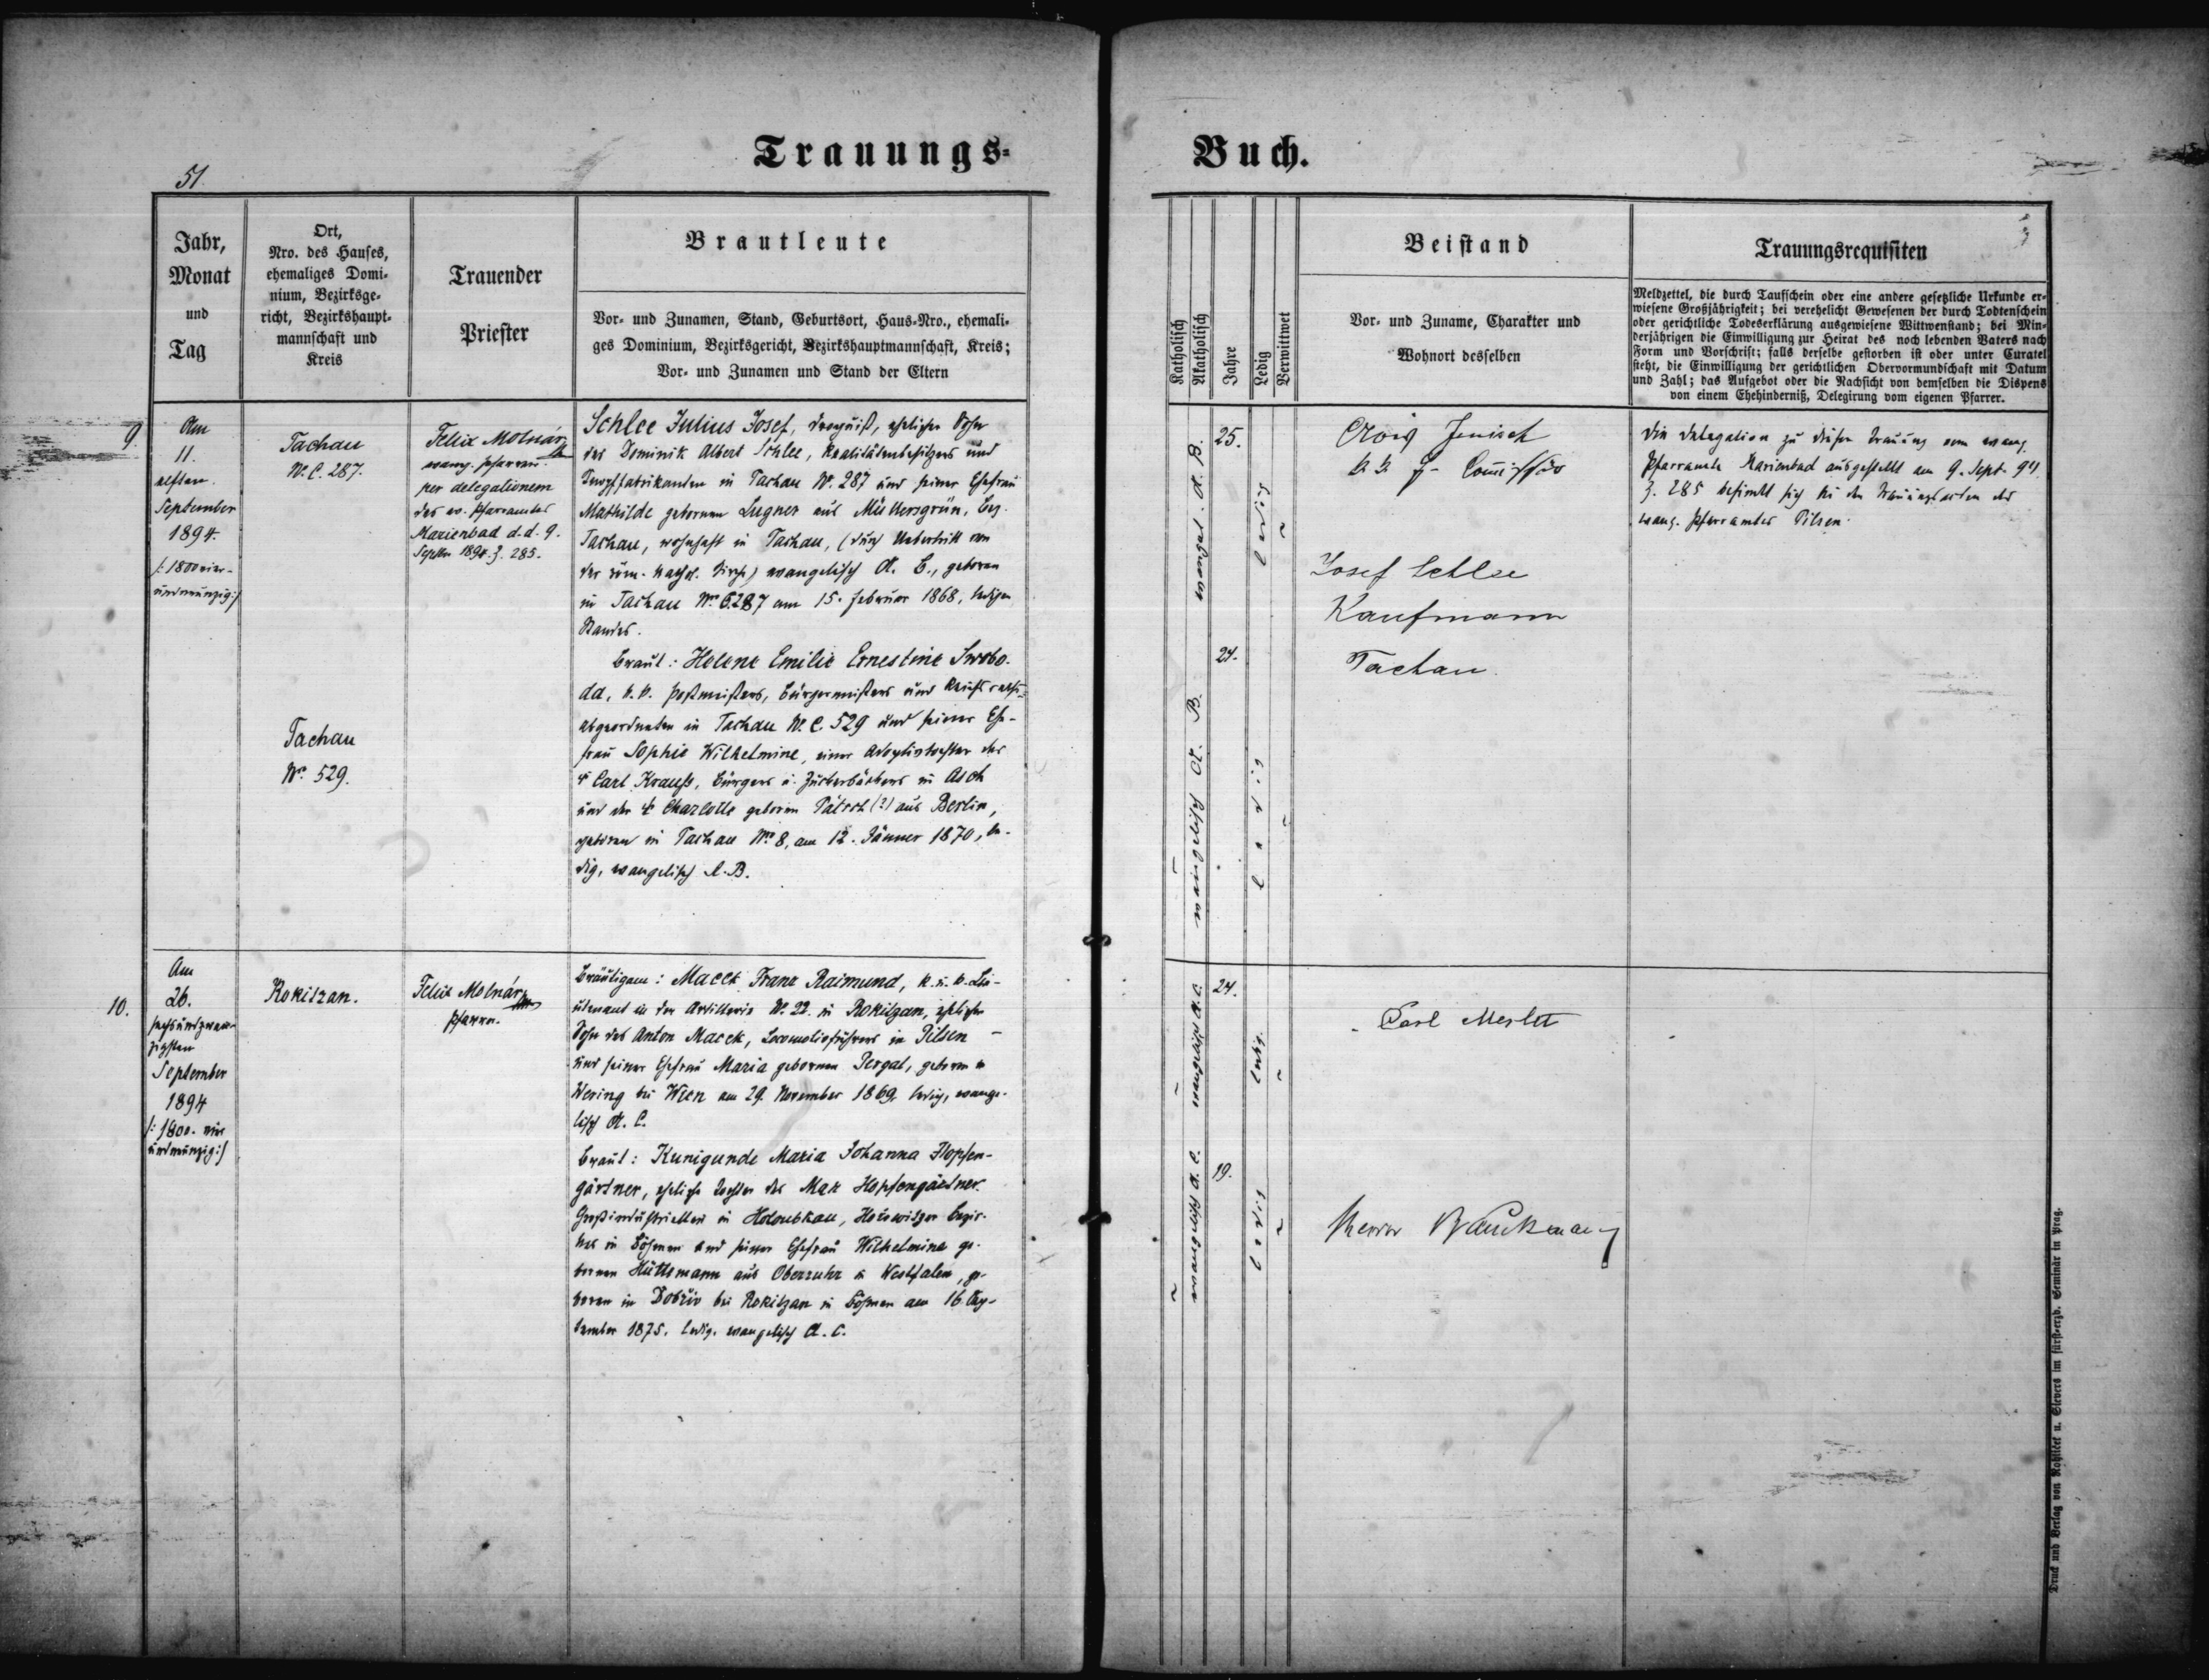 Trauungs-
Buch.
51.
Jahr,
Monat
und
Tag
Ort,
Nro. des Hauses,
ehemaliges Domi-
nium, Bezirksge-
richt, Bezirkshaupt-
mannschaft und
Kreis
Trauender
Priester
Brautleute
Vor- und Zunamen, Stand, Geburtsort, Haus-Nro., ehemali-
ges Dominium, Bezirksgericht, Bezirkshauptmannschaft, Kreis;
Vor- und Zunamen und Stand der Eltern
Katholisch
Akatholisch
Jahre
Ledig
Verwittwet
Beistand
Vor- und Zuname, Charakter und
Wohnort desselben
Trauungsrequisiten
Meldzettel, die durch Taufschein oder eine andere gesetzliche Urkunde er-
wiesene Großjährigkeit; bei verehelicht Gewesenen der durch Todtenschein
oder gerichtliche Todeserklärung ausgewiesene Wittwenstand; bei Min-
derjährigen die Einwilligung zur Heirat des noch lebenden Vaters nach
Form und Vorschrift; falls derselbe gestorben ist oder unter Curatel
steht, die Einwilligung der gerichtlichen Obervormundschaft mit Datum
und Zahl; das Aufgebot oder die Nachsicht von demselben die Dispens
von einem Ehehinderniß, Delegirung vom eigenen Pfarrer.
9.
Am
11.
elften
September
1894.
/: 1800 vier-
undneunzig :/
Tachau
N.C. 287.
Felix Molnár
evang. Pfarrer
per delegationem
des ev. Pfarramtes
Marienbad d.d. 9.
Septbr 1894. Z. 285.
Schlee Julius Josef, ehelicher Sohn
des Dominik Albert Schlee, Realitätenbesitzers und
Knopffabrikanten in Tachau N. 287 und seiner Ehefrau
Mathilde gebornen Lugner aus Müllersgrün, Bez.
Tachau, wohnhaft in Tachau, (durch Uebertritt von
der röm. kathol. Kirche) evangelisch A. B., geboren
in Tachau Nro C. 287 am 15. Februar 1868, ledigen
Standes.
Braut: Helene Emilie Ernestine Swobo-
da, k.k. Postmeisters, Bürgermeisters und Reichsraths-
abgeordneten in Tachau N.C. 529 und seiner Ehe-
frau Sophie Wilhelmine, einer Adoptivtochter des
† Carl Krauß, Bürgers u. Zuckerbäckers in Asch
und der † Charlotte geboren Pätsch (?) aus Berlin,
geboren in Tachau Nro 8, am 12. Jänner 1870, le-
dig, evangelisch A.B.
Tachau
Nro 529.
evangel. A. B.
25.
ledig
evangelisch A. B.
24.
ledig
Alois Jenisch
Josef Schlee
Kaufmann
Tachau.
Die Delegation zu dieser Trauung vom evang.
Pfarramte Marienbad ausgestellt am 9. Sept. 94
Z. 285 befindet sich bei den Trauungsacten des
evang. Pfarramtes Pilsen.
10.
Am
26.
sechsundzwan-
zigsten
September
1894
/: 1800 vier
undneunzig :/
Rokitzan.
Felix Molnár
Pfarrer.
Bräutigam: Macek Franz Raimund, k. u. k. Lie-
utenant in der Artillerie N. 22. in Rokitzan, ehelicher
Sohn des Anton Macek, Locomotivführers in Pilsen
und seiner Ehefrau Maria gebornen Pergat, geboren in
Wering bei Wien am 29. November 1869, ledig, evange-
lisch A. C.
Braut: Kunigunde Maria Johanna Hopfen-
gärtner, eheliche Tochter des Max Hopfengärtner
Großindustriellen in Holoubkau, Hořowitzer Bezir-
kes in Böhmen und seiner Ehefrau Wilhelmine ge-
bornen Hüttemann aus Oberruhr in Westfalen, ge-
boren in Dobřiv bei Rokitzan in Böhmen am 16. Sep-
tember 1875. ledig. evangelisch A. C.
evangelisch A. C.
24.
ledig.
evangelisch A. C.
19.
ledig
Carl Merlet
Druck und Verlag von Rohliček u. Sievers im fürst-erzb. Seminär in Prag.